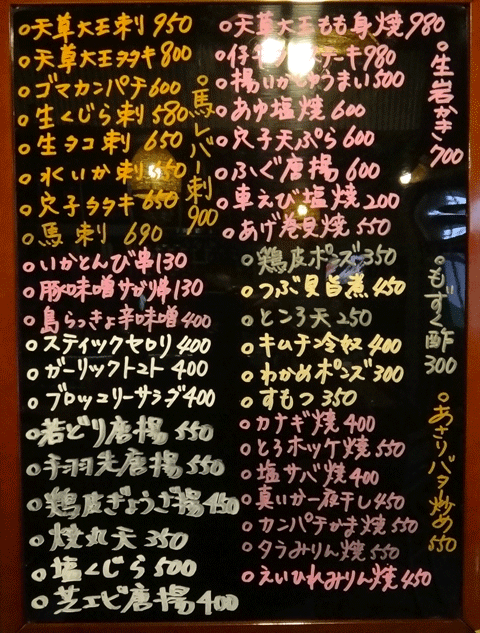 天草大王刺 950
天草大王タタキ 800
ゴマカンパチ 600
生くじら刺 580
生タコ刺 650
水いか刺 650
穴子タタキ 650
馬刺 690
馬レバー刺 900
いかとんび串 130
豚味噌サガリ串 130
島らっきょ辛味噌 400
スティックセロリ 400
ガーリックトマト 400
ブロッコリーサラダ 400
若どり唐揚 550
手羽先唐揚 550
鶏皮ぎょうざ揚 450
焼丸天 350
塩くじら 500
芝エビ唐揚 400
天草大王もも身焼 980
ステーキ 980
揚いかしゅうまい 500
あゆ塩焼 600
穴子天ぷら 600
ふぐ唐揚 600
車えび塩焼 200
あげ巻貝焼 550
鶏皮ポンズ 350
つぶ貝旨煮 450
ところ天 250
キムチ冷奴 400
わかめポンズ 300
すもつ 350
カナギ焼 400
とろホッケ焼 550
塩サバ焼 400
真いか一夜干し 450
カンパチかま焼 550
タラみりん焼 550
えいひれみりん焼 450
生岩かき 700
もずく酢 300
あさりバター炒め 550